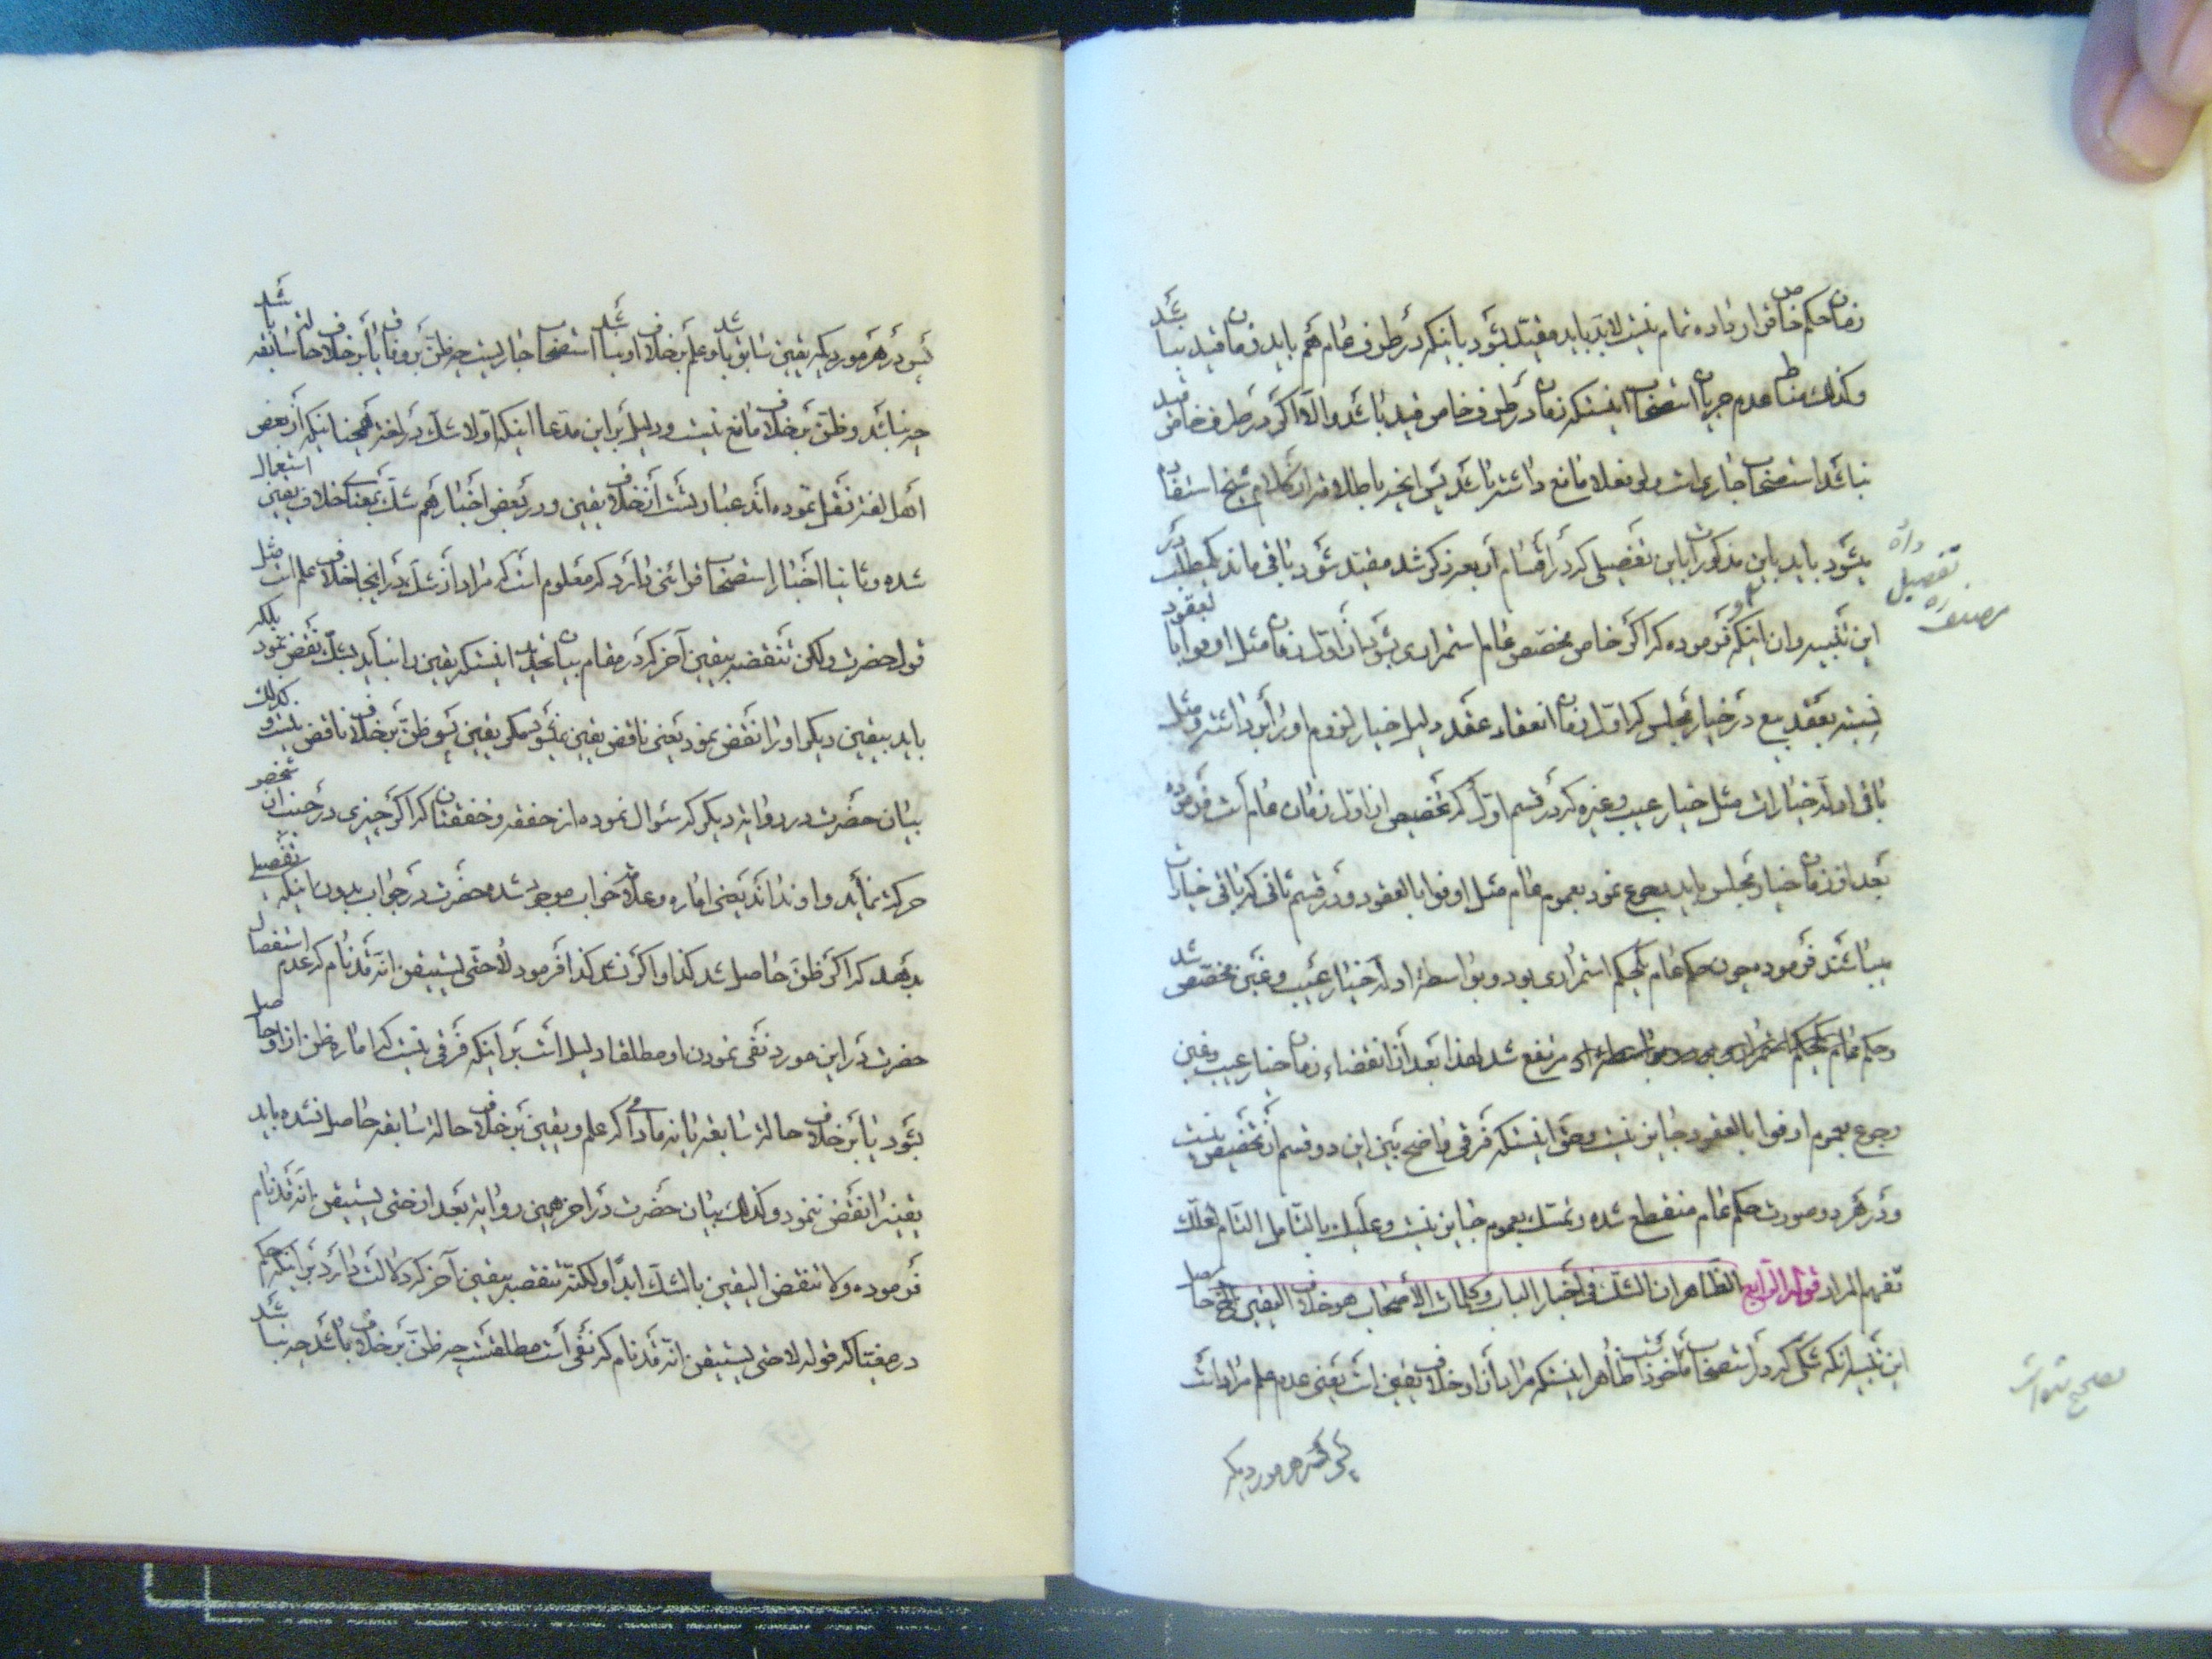 زمان حکم خاص قرار داده تمام نیست لابد باید مقید بشود باینکه در طرف عام هم باید زمان قید نباشد
وکذلک مناط عدم جریان استصحاب اینستکه زمان در طرف خاص قید باشد والا اکر در طرف خاص قید
نباشد استصحاب جاری است ولو فعلا مانع داشته باشد پس انچه باطلاقه از کلام شیخ استفاده
میشود باید باین مذکورات باین تفصیلی که در اقسام اربعه ذکر شد مقید شود باقی ماند یکمطلب در
این تنبیه وان اینکه فرموده که اکر خاص مخصص عام استمراری بشود از اول زمان مثل اوفوا بالعقود
نسبت بعقد بیع در خیار مجلس که اول زمان انعقاد عقد دلیل خیار لزوم اورا برداشته ومثل
باقی ادله خیارات مثل خیار عیب وغیره که در قسم اول که تخصیص از اول زمان عام است فرموده
بعد از زمان خیار مجلس باید رجوع نمود بعموم عام مثل اوفوا بالعقود ودر قسم ثانی که باقی خیارات
میباشند فرموده چون حکم عام یکحکم استمراری بود وبواسطه ادله خیار عیب وغبن مخصص شد
وحکم عام مرتفع شد لهذا بعد از انقضاء زمان خیار عیب وغبن
رجوع بعموم اوفوا بالعقود جایز نیست وحق اینستکه فرقی واضح بین این دو قسم از تخصیص نیست
ودر هر دو صورت حکم عام منقطع شده وتمسک بعموم جایز نیست وعلیک بالتامل التام لعلک
تفهم المراد قوله الرابع الظاهر ان الشک فی اخبار الباب وکلمات الاصحاب هو خلاف الیقین الخ حاصل
این تنبیه انکه شک که در استصحاب ماخوذ است ظاهر اینستکه مراد از او خلاف یقین است یعنی عدم علم مراد است
پس در هر موردیکه
راه
تفصیل
مصنف ره
تصحیح شده است
پس در هر موردیکه یقین سابق باشد وعلم بر خلاف او نباشد استصحاب جاریست چه ظن بر وفاق یا بر خلاف حالت سابقه باشد
چه نباشد وظن بر خلاف مانع نیست ودلیل بر این مدعا اینکه اولا شک در لغت همچنانیکه از بعض
اهل لغت نقل نموده اند عبارتست از خلاف یقین ودر بعض اخبار هم شک بمعنای خلاف یقین استعمال
شده وثانیا اخبار استصحاب قرائنی دارد که معلوم است که مراد از شک در اینجا خلاف علم است مثل
قول حضرت ولکن تنقضه بیقین آخر که در مقام بیان تحدید اینستکه یقین را نباید بشک نقض نمود بلکه
باید بیقین دیکر اورا نقض نمود یعنی ناقض یقین نمیشود مکر یقین پس ظن بر خلاف ناقض نیست وکذلک
بیان حضرت در روایة دیکر که سئوال نموده از خفقه وخفقتان که اکر چیزی در جنب ان شخص
حرکت نماید واو نداند یعنی اماره وعلامة خواب موجود شده حضرت در جواب بدون اینکه تفصیلی
بدهد که اکر ظن حاصل شد کذا واکر نشد کذا فرمود لا حتی یستیقن انه قد نام که عدم استفصال
حضرت در این مورد نفی نمودن او مطلقا دلیل است بر اینکه فرقی نیست که اماره ظن از او حاصل
بشود یا بر خلاف حالة سابقه یا نه مادامی که علم ویقین بر خلاف حالة سابقه حاصل نشده باید
یقین را نقض ننمود وکذلک بیان حضرت در اخر همین روایة بعد از حتی یستیقن انه قد نام
فرموده ولا تنقض الیقین بالشک ابدا ولکنه تنقضه بیقین آخر که دلالت دارد بر اینکه حکم
در مغیا که قوله لا حتی یستیقن انه قد نام که نفی است مطلقست چه ظن بر خلاف باشد چه نباشد